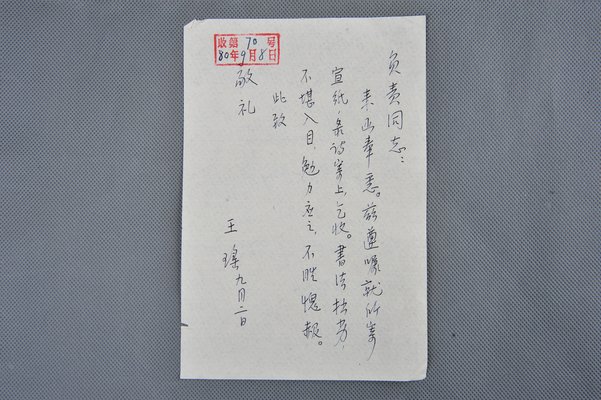 负责同志：
来函奉悉。兹遵嘱就所寄
宣纸，录诗寄上，乞收。书法拙劣，
不堪入目，勉力应之，不胜愧赧。
此致
敬礼
王瑶九月二日
收第70号
80年9月8日